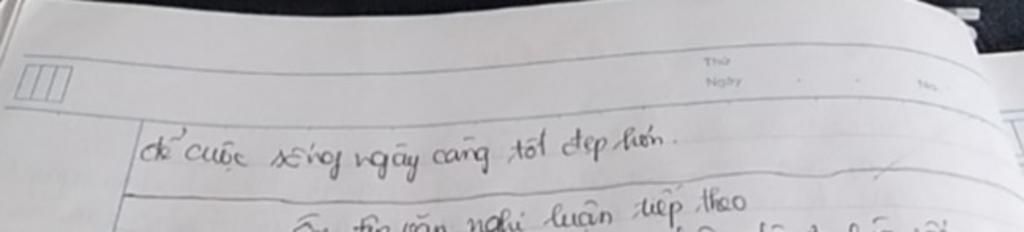 Thứ
Ngày
No.
để cuộc sống ngày càng tốt đẹp hơn.
văn nghị luận tiếp theo